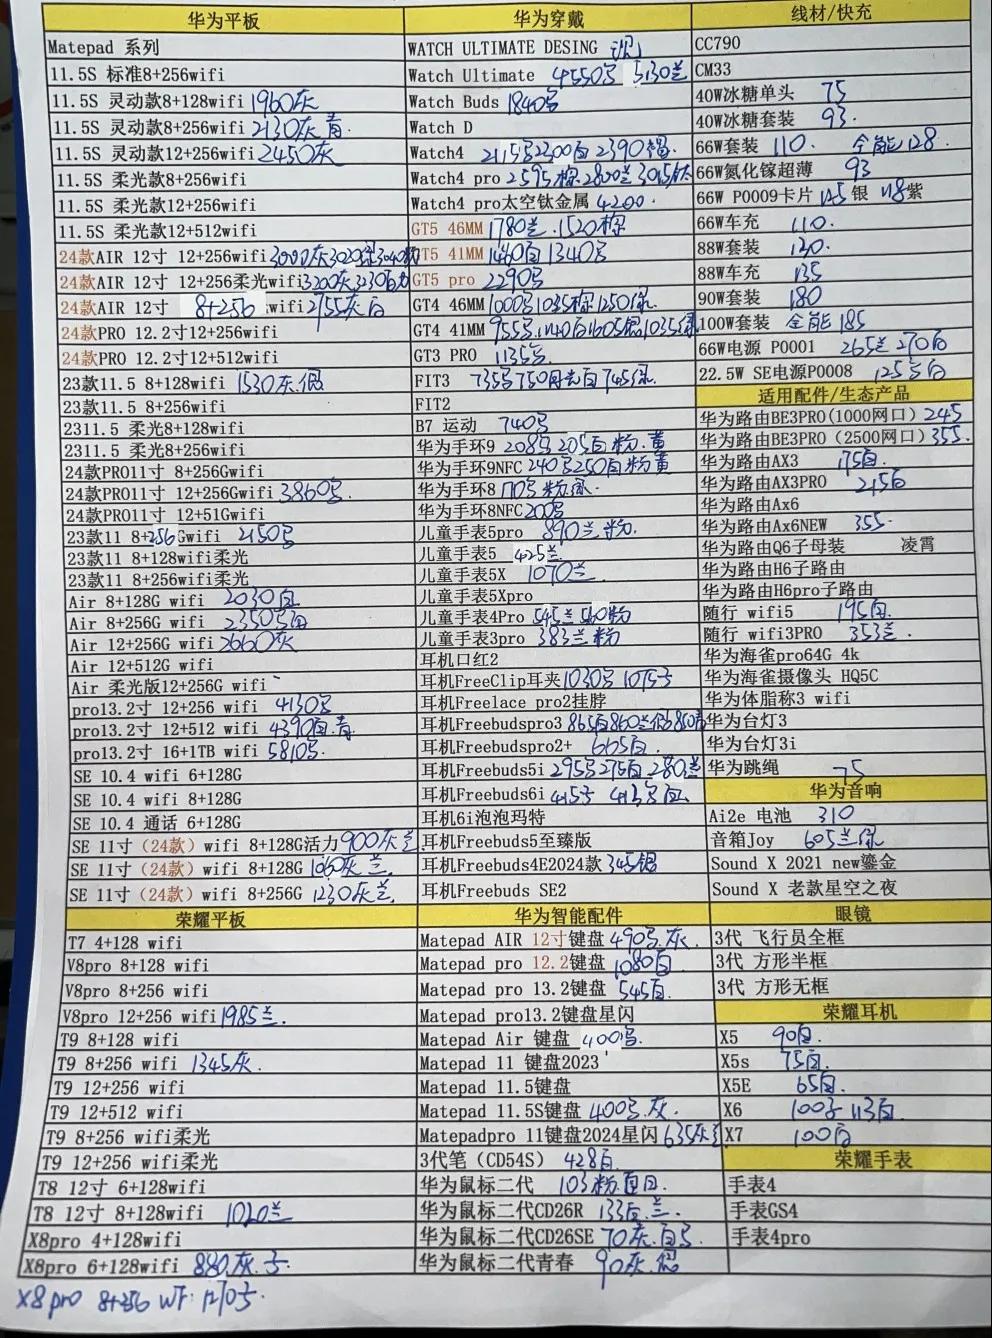 华为平板
Matepad 系列
11.5S 标准8+256wifi
11.5S 灵动款8+128wifi 1960灰
11.5S 灵动款8+256wifi 2130灰青.
11.5S 灵动款12+256wifi 2450灰
11.5S 柔光款8+256wifi
11.5S 柔光款12+256wifi
11.5S 柔光款12+512wifi
24款AIR 12寸 12+256wifi 3000灰3020绿3040
24款AIR 12寸 12+256柔光wifi 3200灰3230白
24款AIR 12寸 8+256 wifi 2755灰白
24款PRO 12.2寸12+256wifi
24款PRO 12.2寸12+512wifi
23款11.5 8+128wifi 1530灰.银
23款11.5 8+256wifi
2311.5 柔光8+128wifi
2311.5 柔光8+256wifi
24款PRO11寸 8+256Gwifi
24款PRO11寸 12+256Gwifi 3860
24款PRO11寸 12+51Gwifi
23款11 8+256Gwifi 2150
23款11 8+128wifi柔光
23款11 8+256wifi柔光
Air 8+128G wifi 2030白
Air 8+256G wifi 2350白
Air 12+256G wifi 2660灰
Air 12+512G wifi
Air 柔光版12+256G wifi
pro13.2寸 12+256 wifi 4130
pro13.2寸 12+512 wifi 4390白.青
pro13.2寸 16+1TB wifi 5810
SE 10.4 wifi 6+128G
SE 10.4 wifi 8+128G
SE 10.4 通话 6+128G
SE 11寸（24款）wifi 8+128G活力 900灰兰
SE 11寸（24款）wifi 8+128G 1060灰兰.
SE 11寸（24款）wifi 8+256G 1230灰兰
荣耀平板
T7 4+128 wifi
V8pro 8+128 wifi
V8pro 8+256 wifi
V8pro 12+256 wifi 1985兰.
T9 8+128 wifi
T9 8+256 wifi 1345灰.
T9 12+256 wifi
T9 12+512 wifi
T9 8+256 wifi柔光
T9 12+256 wifi柔光
T8 12寸 6+128wifi
T8 12寸 8+128wifi 1020兰
X8pro 4+128wifi
X8pro 6+128wifi 880灰.
X8pro 8+256 WF: 1270
华为穿戴
WATCH ULTIMATE DESING
Watch Ultimate 4550 5130兰
Watch Buds 1840
Watch D
Watch4 2115 2300白2390
Watch4 pro 2595棕.2800兰3015钛
Watch4 pro太空钛金属 4200.
GT5 46MM 1780兰.1520棕
GT5 41MM 1460白1340
GT5 pro 2290
GT4 46MM 1000 1035棕1250绿.
GT4 41MM 955 1140白1605银1035绿
GT3 PRO 1135
FIT3 735 750白745绿.
FIT2
B7 运动 740
华为手环9 208 205白粉.黄
华为手环9NFC 240 250白粉黄
华为手环8 170 粉.绿.
华为手环8NFC 200
儿童手表5pro 890兰粉.
儿童手表5 425兰
儿童手表5X 1070兰
儿童手表5Xpro
儿童手表4Pro 545兰560粉
儿童手表3pro 383兰粉
耳机口红2
耳机FreeClip耳夹 1030 1075
耳机Freelace pro2挂脖
耳机Freebudspro3 865白860兰银850
耳机Freebudspro2+ 665白.
耳机Freebuds5i 295 275白280兰
耳机Freebuds6i 415 413
耳机6i泡泡玛特
耳机Freebuds5至臻版
耳机Freebuds4E2024款 345银
耳机Freebuds SE2
华为智能配件
Matepad AIR 12寸键盘 490 灰.
Matepad pro 12.2键盘 1080白
Matepad pro 13.2键盘 545白.
Matepad pro13.2键盘星闪
Matepad Air 键盘 400
Matepad 11 键盘2023
Matepad 11.5键盘
Matepad 11.5S键盘 400 灰.
Matepadpro 11键盘2024星闪 635灰
3代笔（CD54S） 428白
华为鼠标二代 103粉
华为鼠标二代CD26R 133白.兰.
华为鼠标二代CD26SE 70灰.白
华为鼠标二代青春 90灰.银
线材/快充
CC790
CM33
40W冰糖单头 75
40W冰糖套装 93.
66W套装 110. 全能128
66W氮化镓超薄 93
66W P0009卡片 125银 118紫
66W车充 110.
88W套装 120.
88W车充 135
90W套装 180
100W套装 全能185
66W电源 P0001 265兰270白
22.5W SE电源P0008 125白
适用配件/生态产品
华为路由BE3PRO(1000网口) 245
华为路由BE3PRO（2500网口）355.
华为路由AX3 175白.
华为路由AX3PRO 215白
华为路由Ax6
华为路由Ax6NEW 355.
华为路由Q6子母装 凌霄
华为路由H6子路由
华为路由H6pro子路由
随行 wifi5 195白.
随行 wifi3PRO 353兰.
华为海雀pro64G 4k
华为海雀摄像头 HQ5C
华为体脂称3 wifi
华为台灯3
华为台灯3i
华为跳绳 75
华为音响
Ai2e 电池 310
音箱Joy 605兰绿
Sound X 2021 new鎏金
Sound X 老款星空之夜
眼镜
3代 飞行员全框
3代 方形半框
3代 方形无框
荣耀耳机
X5 90白.
X5s 75白.
X5E 65白.
X6 100 113白.
X7 100白
荣耀手表
手表4
手表GS4
手表4pro